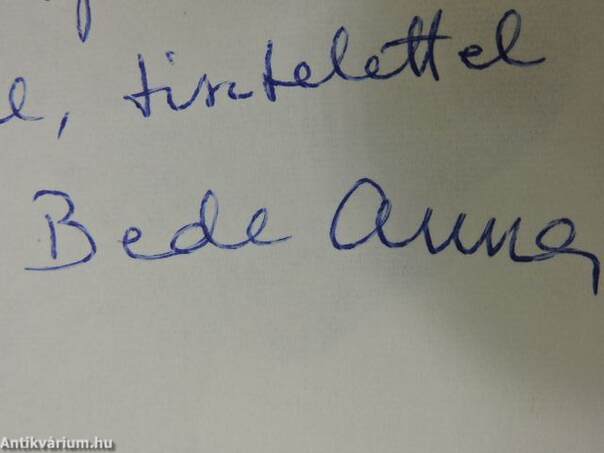 tisztelettel
Bede Anna
Antikvárium.hu